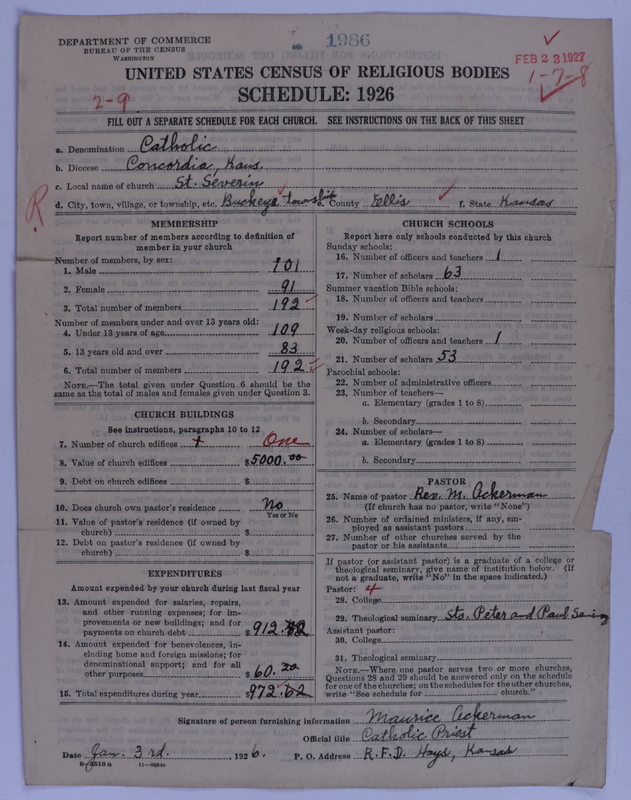 1986
DEPARTMENT OF COMMERCE
BUREAU OF THE CENSUS
WASHINGTON
FEB 23 1927
1-7-8
UNITED STATES CENSUS OF RELIGIOUS BODIES
SCHEDULE: 1926
2-9
FILL OUT A SEPARATE SCHEDULE FOR EACH CHURCH. SEE INSTRUCTIONS ON THE BACK OF THIS SHEET
a. Denomination Catholic
b. Diocese Concordia, Kans.
c. Local name of church St. Severin
d. City, town, village, or township, etc. Buckeye township e. County Ellis f. State Kansas
R
MEMBERSHIP
Report number of members according to definition of
member in your church
Number of members, by sex:
1. Male 101
2. Female 91
3. Total number of members 192
Number of members under and over 13 years old:
4. Under 13 years of age 109
5. 13 years old and over 83
6. Total number of members 192
NOTE.—The total given under Question 6 should be the
same as the total of males and females given under Question 3.
CHURCH BUILDINGS
See instructions, paragraphs 10 to 12
7. Number of church edifices + One
8. Value of church edifices $5000.00
9. Debt on church edifices $
10. Does church own pastor's residence No
Yes or No
11. Value of pastor's residence (if owned by
church) $
12. Debt on pastor's residence (if owned by
church) $
EXPENDITURES
Amount expended by your church during last fiscal year
13. Amount expended for salaries, repairs,
and other running expenses; for im-
provements or new buildings; and for
payments on church debt $912.62
14. Amount expended for benevolences, in-
cluding home and foreign missions; for
denominational support; and for all
other purposes $60.00
15. Total expenditures during year $972.62
CHURCH SCHOOLS
Report here only schools conducted by this church
Sunday schools:
16. Number of officers and teachers 1
17. Number of scholars 63
Summer vacation Bible schools:
18. Number of officers and teachers
19. Number of scholars
Week-day religious schools:
20. Number of officers and teachers 1
21. Number of scholars 53
Parochial schools:
22. Number of administrative officers
23. Number of teachers—
a. Elementary (grades 1 to 8)
b. Secondary
24. Number of scholars—
a. Elementary (grades 1 to 8)
b. Secondary
PASTOR
25. Name of pastor Rev. M. Ackerman
(If church has no pastor, write "None")
26. Number of ordained ministers, if any, em-
ployed as assistant pastors
27. Number of other churches served by the
pastor or his assistants
If pastor (or assistant pastor) is a graduate of a college or
theological seminary, give name of institution below. (If
not a graduate, write "No" in the space indicated.)
Pastor: 4
28. College
29. Theological seminary Sts. Peter and Paul
Assistant pastor:
30. College
31. Theological seminary
NOTE.—Where one pastor serves two or more churches,
Questions 28 and 29 should be answered only on the schedule
for one of the churches; on the schedules for the other churches,
write "See schedule for church."
Signature of person furnishing information Maurice Ackerman
Official title Catholic Priest
Date Jan. 3rd. , 1926. P. O. Address R.F.D. Hays, Kansas